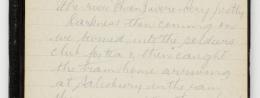 the river there were very pretty
Darkness then coming on
we turned into the soldiers
club for tea & then caught
the tram home arriving
at Salisbury in the rain